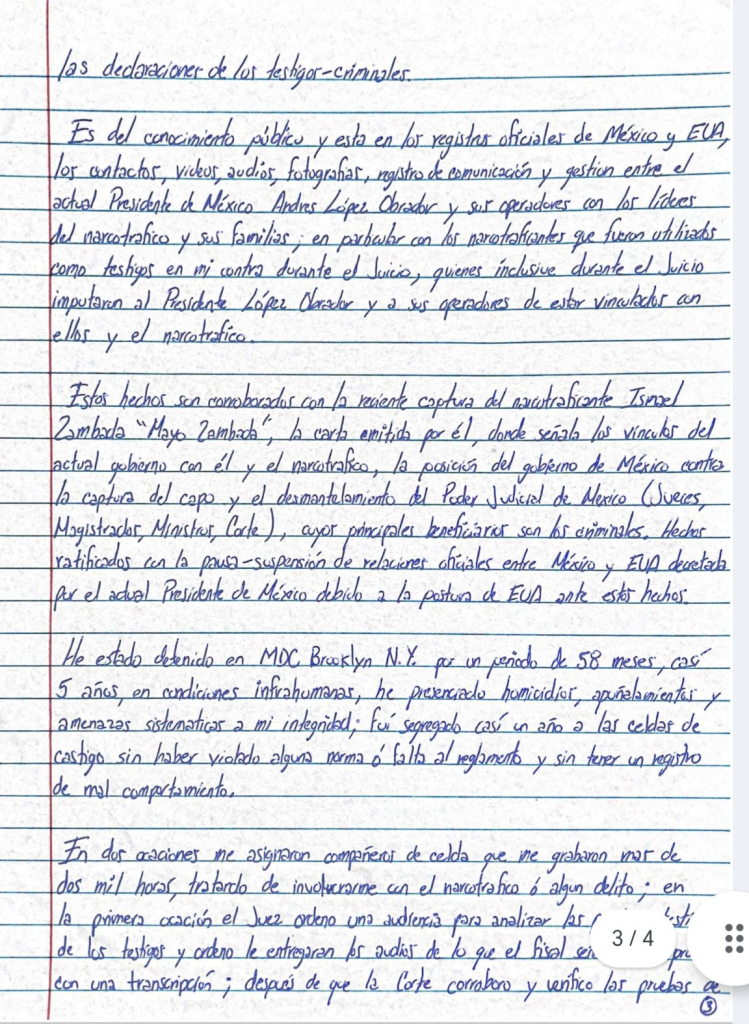 las declaraciones de los testigos-criminales.
Es del conocimiento público y esta en los registros oficiales de México y EUA,
los contactos, videos, audios, fotografías, registro de comunicación y gestion entre el
actual Presidente de México Andres López Obrador y sus operadores con los líderes
del narcotrafico y sus familias; en particular con los narcotraficantes que fueron utilizados
como testigos en mi contra durante el Juicio, quienes inclusive durante el Juicio
imputaron al Presidente López Obrador y a sus operadores de estar vinculados con
ellos y el narcotrafico.
Estos hechos son corroborados con la reciente captura del narcotraficante Ismael
Zambada "Mayo Zambada", la carta emitida por él, donde señala los vinculos del
actual gobierno con él y el narcotrafico, la posición del gobierno de México contra
la captura del capo y el desmantelamiento del Poder Judicial de Mexico (Jueces,
Magistrados, Ministros, Corte), cuyos principales beneficiarios son los criminales. Hechos
ratificados con la pausa-suspensión de relaciones oficiales entre México y EUA decretada
por el actual Presidente de México debido a la postura de EUA ante estos hechos.
He estado detenido en MDC Brooklyn N.Y. por un periodo de 58 meses, casí
5 años, en condiciones infrahumanas, he presenciado homicidios, apuñalamientos y
amenazas sistematicas a mi integridad; fuí segregado casí un año a las celdas de
castigo sin haber violado alguna norma ó falta al reglamento y sin tener un registro
de mal comportamiento.
En dos ocaciones me asignaron compañeros de celda que me grabaron mas de
dos mil horas, tratando de involucrarme con el narcotrafico ó algun delito; en
la primera ocación el Juez ordeno una audiencia para analizar las
de los testigos y ordeno le entregaran los audios de lo que el fiscal
con una transcripción; después de que la Corte corroboro y verifico las pruebas de
3 / 4
3